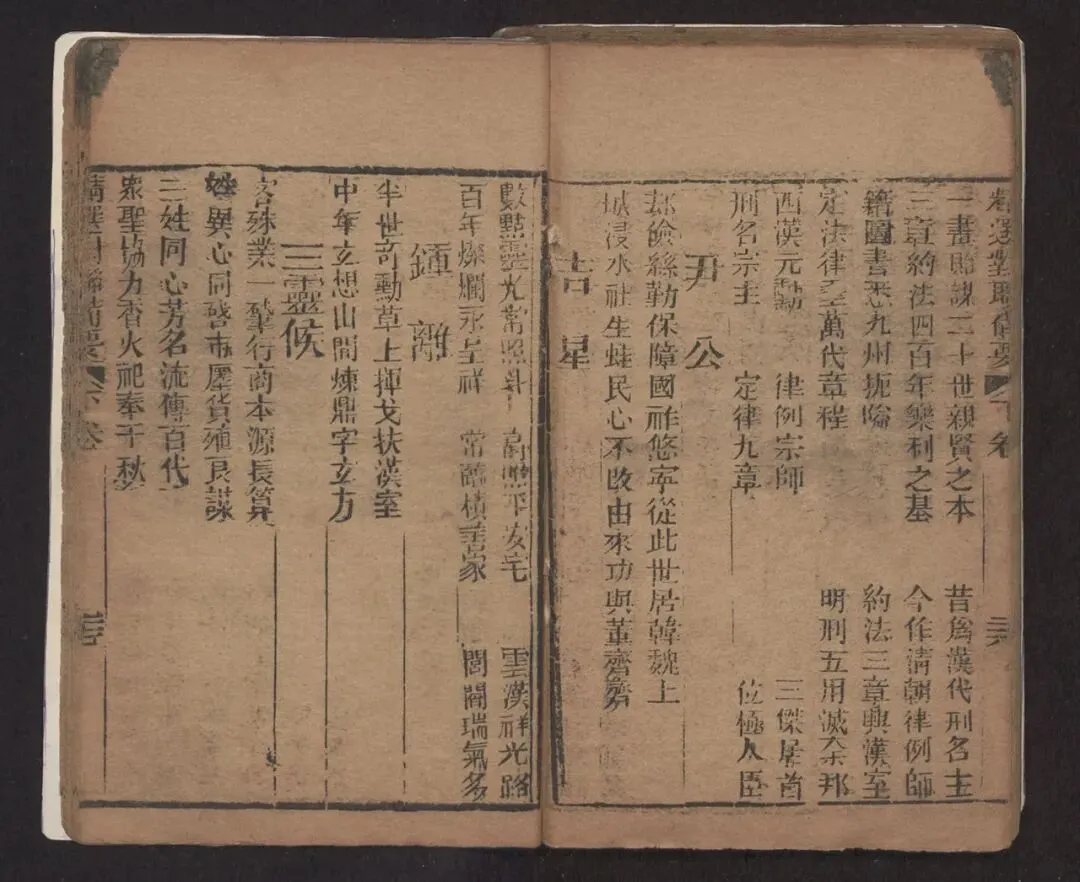 精選對聯備要 下卷 三六
一畫貽謀二十世親賢之本 昔為漢代刑名主
三章約法四百年樂利之基 今作清朝律例師
籍圖書悉九州扼隘 約法三章興漢室
定法律立萬代章程 明刑五用滅秦邦
西漢元勳 律例宗師 三傑居首
刑名宗主 定律九章 位極人臣
尹公
恭儉絲勤保障國祚悠寧從此世居韓魏上
城浸水社生蛙民心不改由來功與董齊齊
吉星
數點靈光常照斗 高照平安宅 雲漢祥光路
百年燦爛永呈祥 常臨積善家 閭閻瑞氣多
鍾離
半世奇勳草上揮戈扶漢室
中年玄想山間煉鼎字玄方
三靈候
客殊業一肇行商本源長算
姓異心同啓市廛貨殖良謀
三姓同心芳名流傳百代
眾聖協力香火祀奉千秋
精選對聯備要 下卷 三七